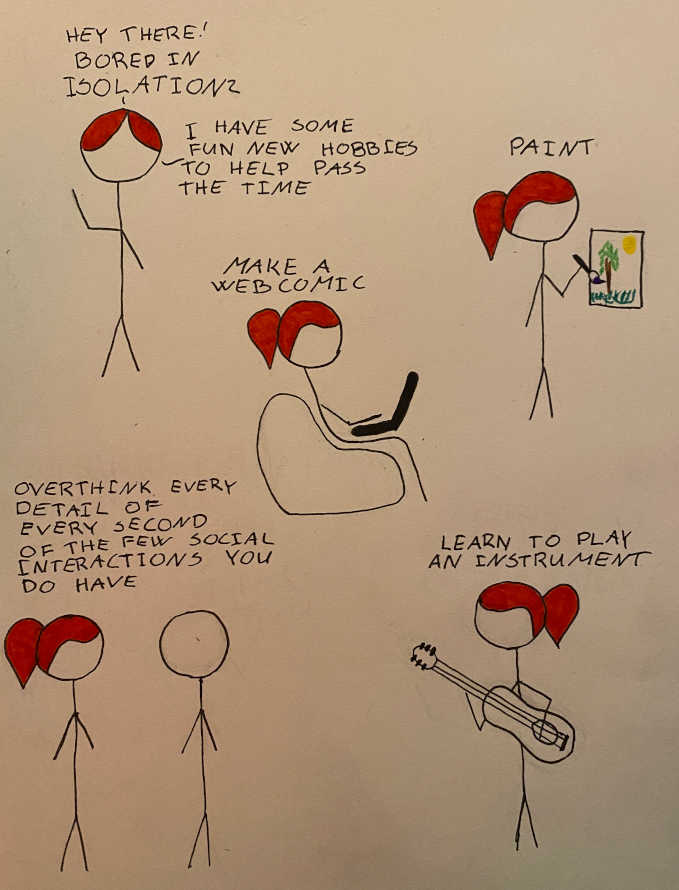 HEY THERE!
BORED IN
ISOLATION?
I HAVE SOME
FUN NEW HOBBIES
TO HELP PASS
THE TIME
PAINT
MAKE A
WEBCOMIC
OVERTHINK EVERY
DETAIL OF
EVERY SECOND
OF THE FEW SOCIAL
INTERACTIONS YOU
DO HAVE
LEARN TO PLAY
AN INSTRUMENT